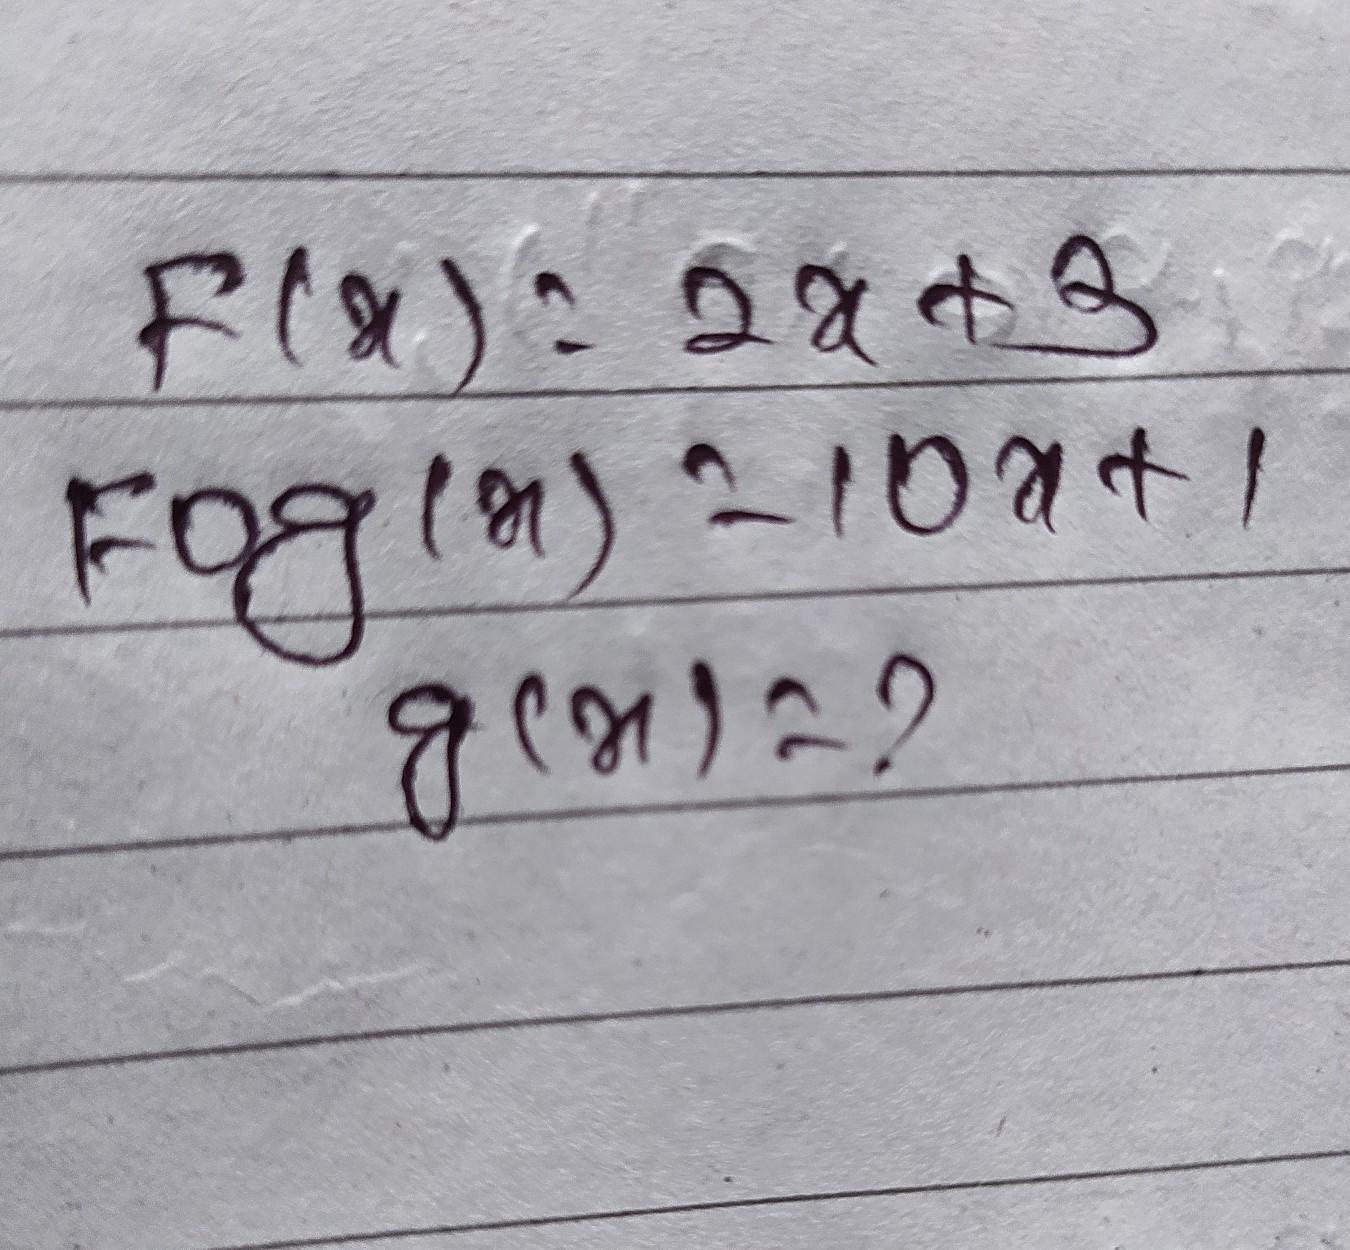 F(x) = 2x + 3
Fog(x) = 10x + 1
g(x) = ?